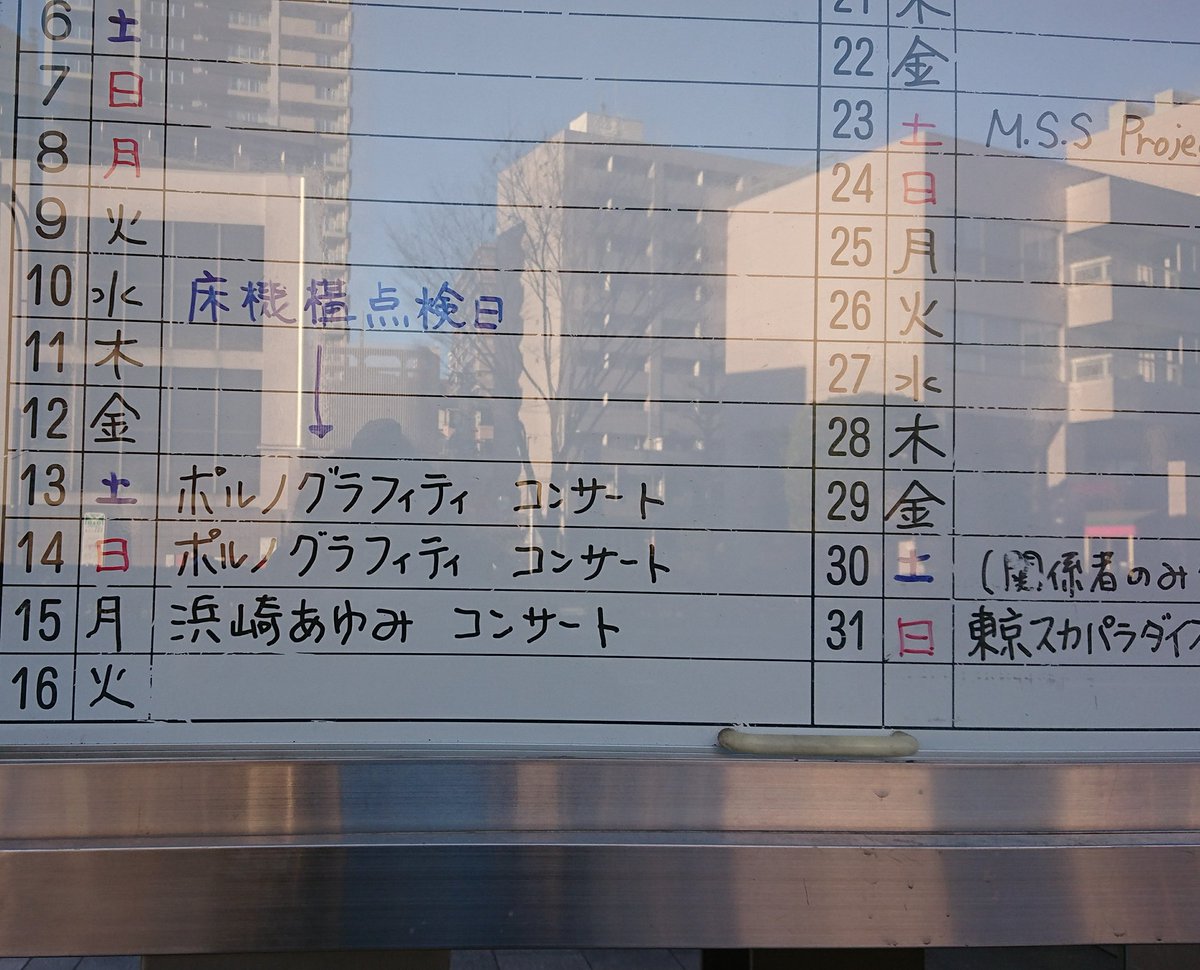 6 土
7 日
8 月
9 火
10 水 床機構点検日
11 木
12 金
13 土 ポルノグラフィティ コンサート
14 日 ポルノグラフィティ コンサート
15 月 浜崎あゆみ コンサート
16 火
21 木
22 金
23 土 M.S.S Projec
24 日
25 月
26 火
27 水
28 木
29 金
30 土 (関係者のみ
31 日 東京スカパラダイス